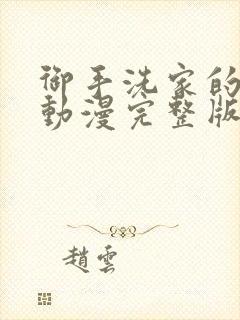 御手洗家的
動漫完整版
趙雲